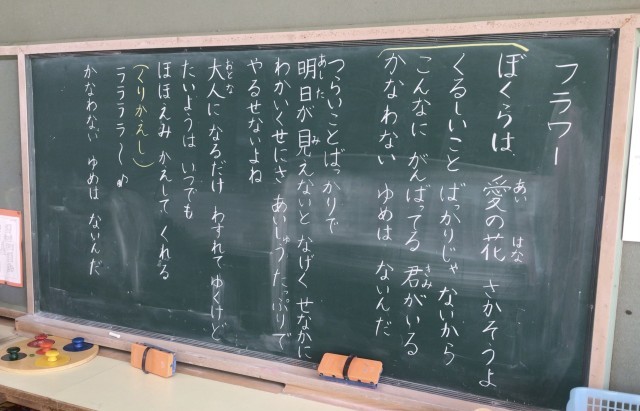 フラワー
ぼくらは 愛の花 さかそうよ
くるしいこと ばっかりじゃ ないから
こんなに がんばってる 君がいる
かなわない ゆめは ないんだ
つらいことばっかりで
明日が 見えないと なげく せなかに
わかいくせにさ あいしゅう たっぷりで
やるせないよね
大人に なるだけ わすれて ゆくけど
たいようは いつでも
ほほえみ かえして くれる
(くりかえし)
ララララ〜♪
かなわない ゆめは ないんだ